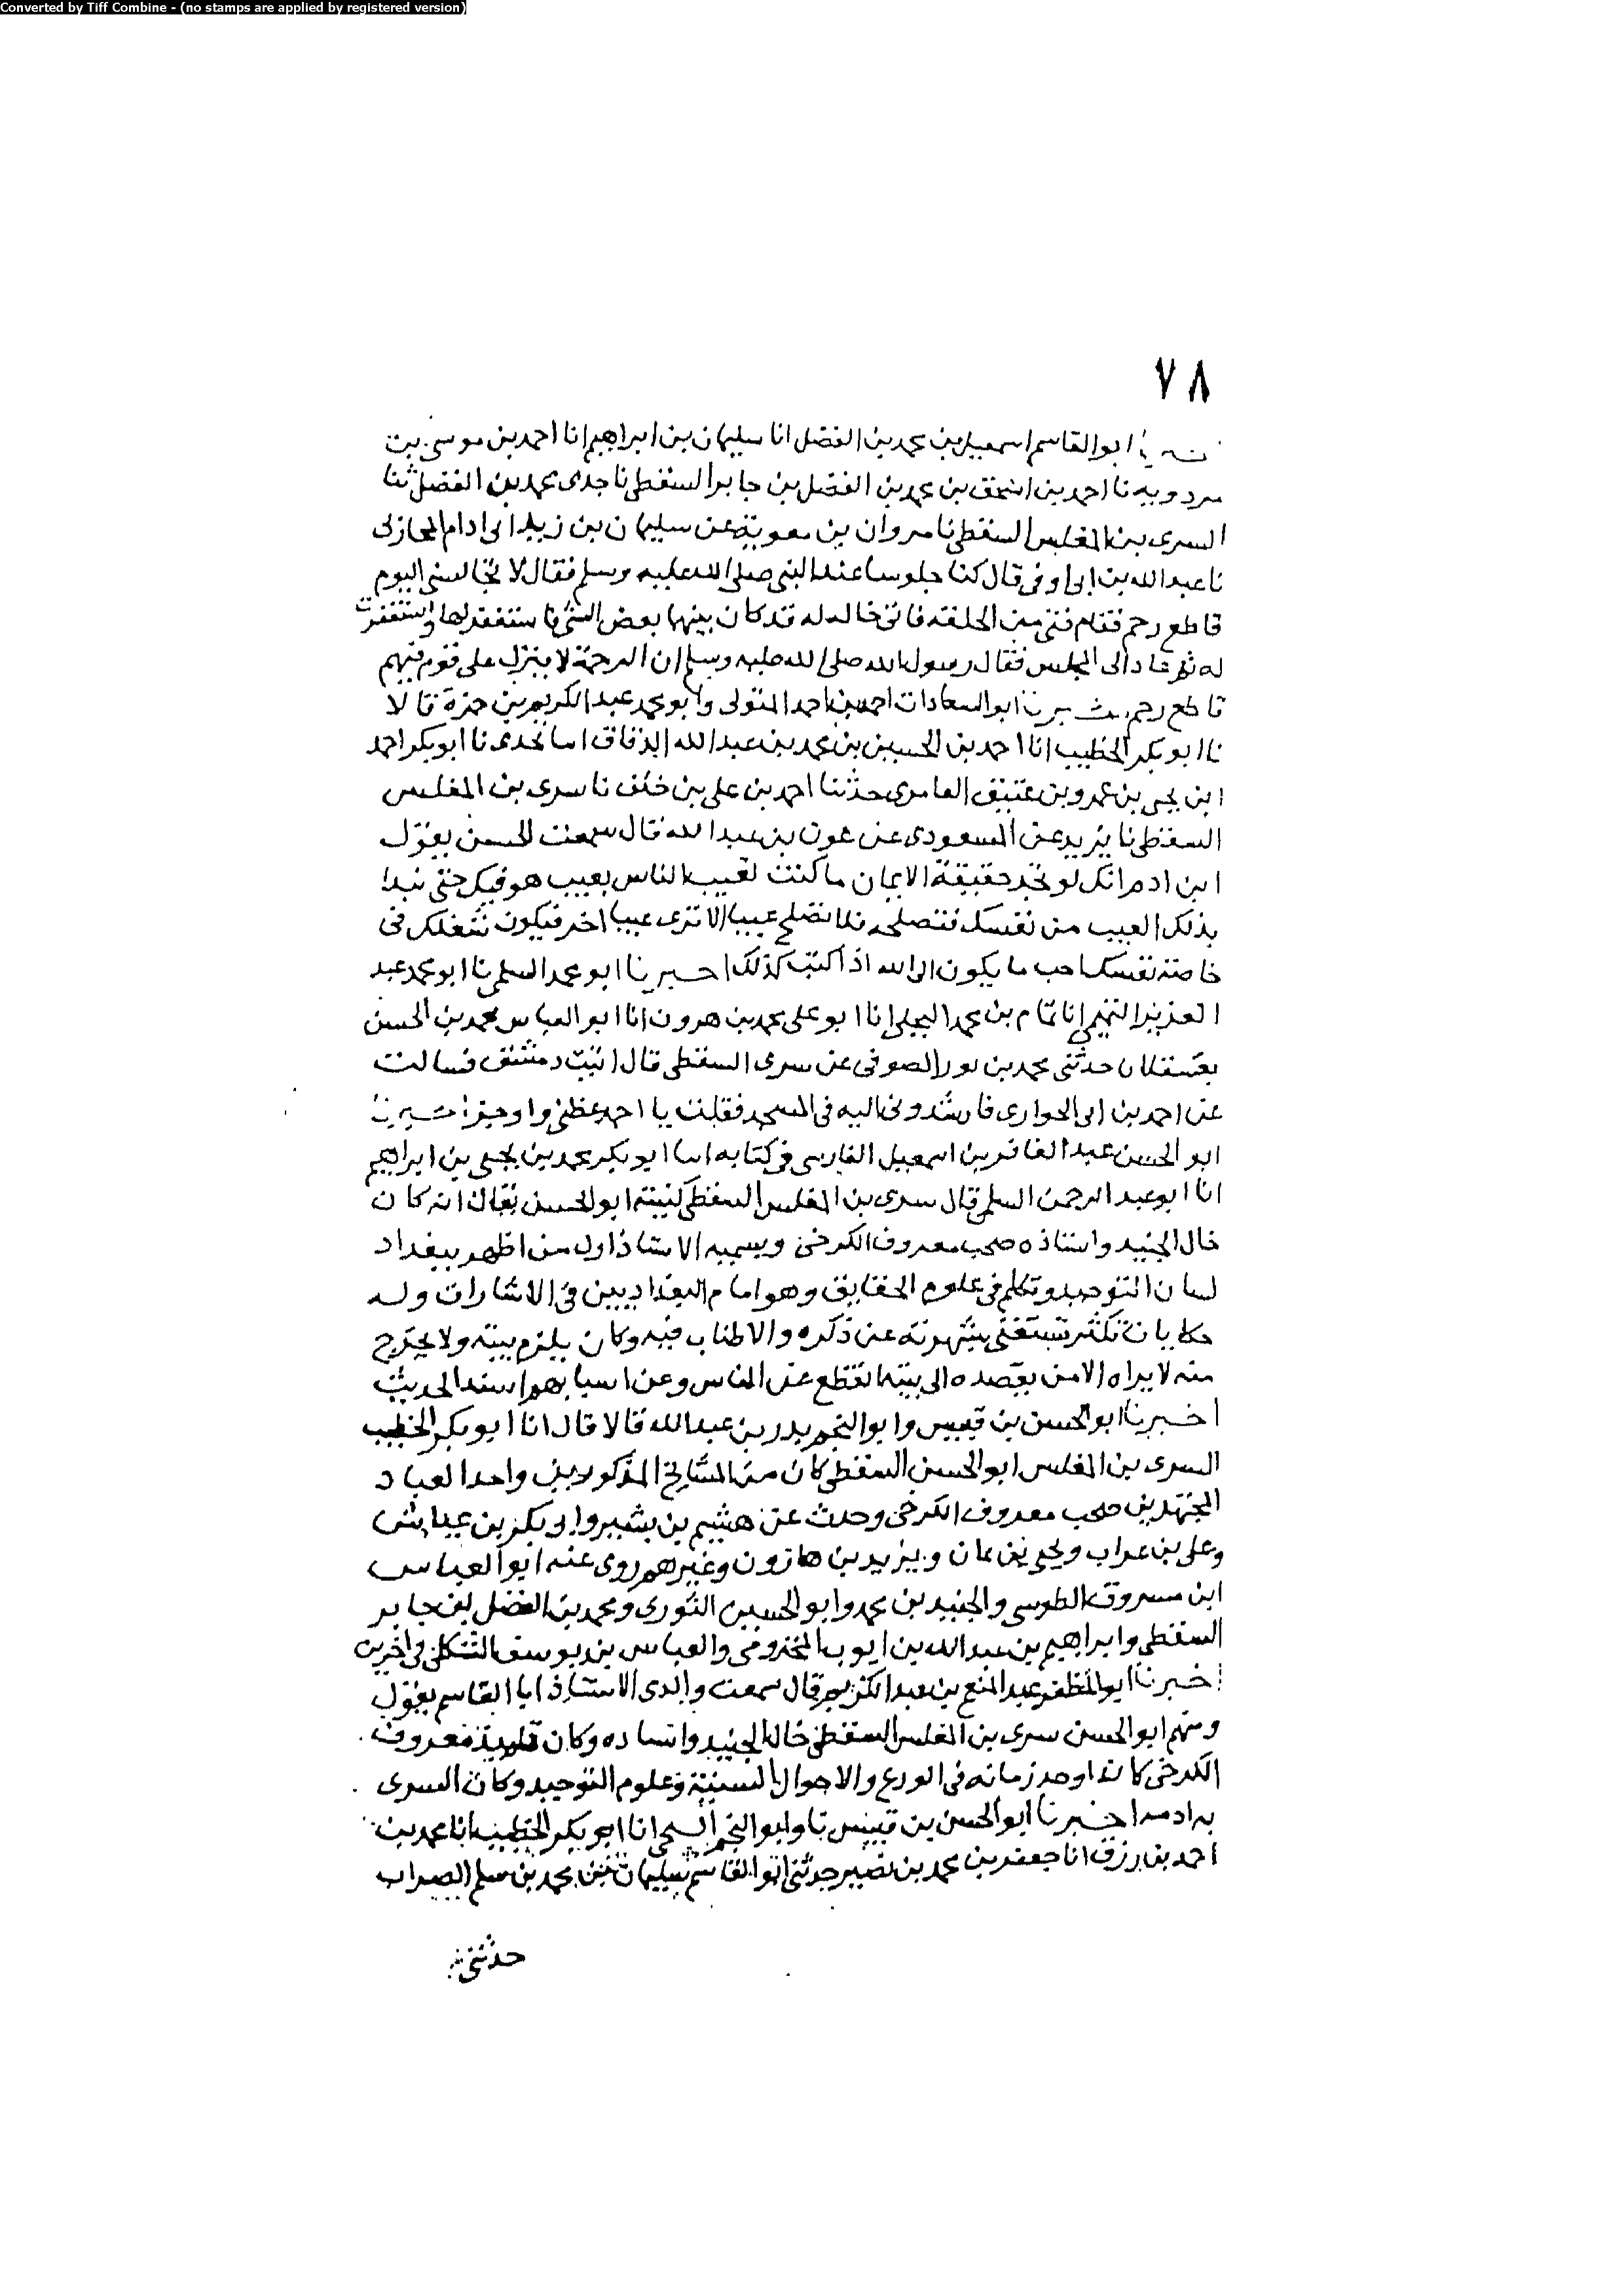 Converted by Tiff Combine - (no stamps are applied by registered version)
٧٨
ابو القاسم اسمعيل بن محمد بن الفضل انا سليمان بن ابراهيم انا احمد بن موسى بن
مردويه نا احمد بن اسحق بن محمد بن الفضل بن جابر السقطي نا جدى محمد بن الفضل ثنا
السرى بن المغلس السقطي نا مروان بن معوية عن سليمان بن زيد ابى ادام المحازلى
نا عبد الله بن ابى اوفى قال كنا جلوسا عند النبى صلى الله عليه وسلم فقال لا يجالسنى اليوم
قاطع رحم فقام فتى من الحلقه فاتى خالة له قد كان بينهما بعض الشئ فاستغفر لها واستغفرت
له ثم عاد الى المجلس فقال رسول الله صلى الله عليه وسلم ان الرحمة لا ينزل على قوم فيهم
قاطع رحم ابو السعادات احمد بن احمد المتولى وابو محمد عبد الكريم بن حمزة قالا
نا ابو بكر الخطيب انا احمد بن الحسين بن محمد بن عبد الله الدقاق نا ابو بكر احمد
ابن يحيى بن عمرو بن عتيق العامرى حدثنا احمد بن على بن خلف نا سرى بن المغلس
السقطي نا يزيد عن المسعودى عن عون بن عبد الله قال سمعت الحسن يقول
ابن ادم انك لو تجد حقيقة الايمان ما كنت تعيب الناس بعيب هو فيك حتى تبدا
بذلك العيب من نفسك فتصلحه فلا تصلح عيبا الا ترى عيبا اخر فيكون شغلك فى
خاصة نفسك احب ما يكون الى الله اذا كنت كذلك اخبرنا ابو محمد السلمى نا ابو محمد عبد
العزيز التميمى انا تمام بن محمد البجلى انا ابو على محمد بن هرون انا ابو العباس محمد بن الحسن
بعسقلان حدثنى محمد بن نور الصوفى عن سرى السقطى قال اتيت دمشق فسالت
عن احمد بن ابى الحوارى فارشدونى اليه فى المسجد فقلت يا احمد عظنى واوجز اخبرنا
ابو الحسن عبد الغافر بن اسمعيل الفارسى فى كتابه انا ابو بكر محمد بن يحيى بن ابراهيم
انا ابو عبد الرحمن السلمى قال سرى بن المغلس السقطى كنيته ابو الحسن يقال انه كان
خال الجنيد واستاذه صحب معروف الكرخى ويسميه الاستاذ اول من اظهر ببغداد
لسان التوحيد وتكلم فى علوم الحقايق وهو امام البغداديين فى الاشارات وله
حكايات تكثر تستغنى بشهرته عن ذكره والاطناب فيه وكان يلزم بيته ولا يخرج
منه لا يراه الا من يقصده الى بيته انقطع عن الناس وعن اسبابهم اسند الحديث
اخبرنا ابو الحسن بن قبيس وابو النجم بدر بن عبد الله قالا قال انا ابو بكر الخطيب
السرى بن المغلس ابو الحسن السقطى كان من المشايخ المذكورين واحد العباد
المجتهدين صحب معروف الكرخى وحدث عن هشيم بن بشير وابى بكر بن عياش
وعلى بن عراب ويحيى بن يمان ويزيد بن هارون وغيرهم روى عنه ابو العباس
ابن مسروق الطوسى والجنيد بن محمد وابو الحسين النورى ومحمد بن الفضل بن جابر
السقطى وابراهيم بن عبد الله بن ايوب المخزومى والعباس بن يوسف الشكلى فى اخرين
اخبرنا ابو المظفر عبد المنعم بن عبد الكريم قال سمعت والدى الاستاذ ابا القاسم يقول
ومنهم ابو الحسن سرى بن المغلس السقطى خال الجنيد واستاده وكان تلميذ معروف
الكرخى كان اوحد زمانه فى الورع والاحوال السنية وعلوم التوحيد وكان السرى
به ادمه اخبرنا ابو الحسن بن قبيس نا وابو النجم الشيحى انا ابو بكر الخطيب انا محمد بن
احمد بن رزق انا جعفر بن محمد بن نصير حدثنى ابو القاسم سليمان بن محمد بن سلم الضراب
حدثنى